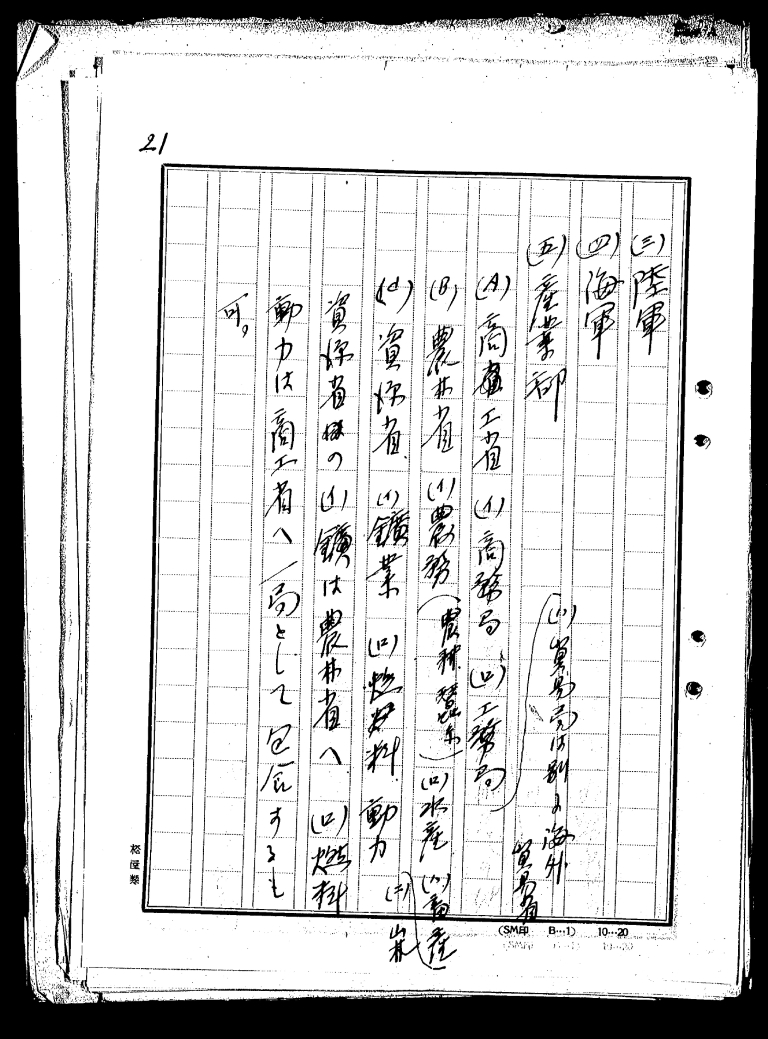 21
(三)陸軍
(四)海軍
(五)産業部
(A)商工省 (イ)商務局 (ロ)工務局
(ハ)貿易局は別に海外
貿易省
(B)農林省 (イ)農務(農耕蚕糸) (ロ)水産 (ハ)畜産
(ニ)山林
(d)資源省 (イ)鑛業 (ロ)燃料 動力
資源省の(イ)鑛は農林省へ (ロ)燃料
動力は商工省へ一局として包含するも
可。
松屋製
(SM印 B…1) 10…20